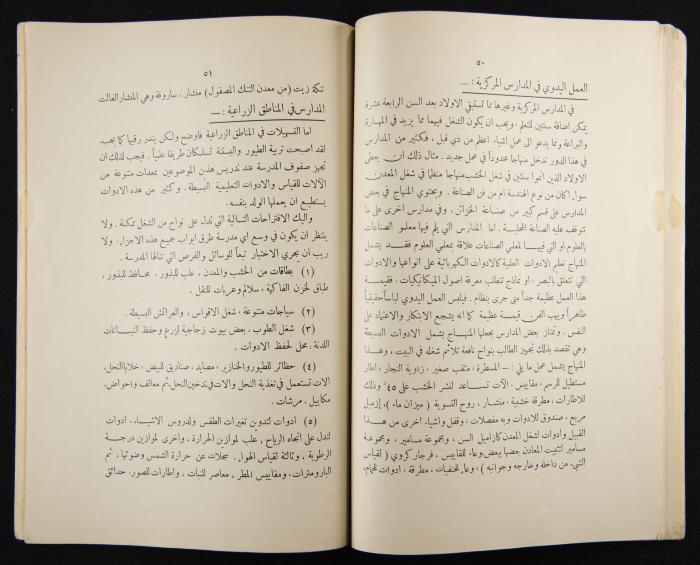 ٥٠
العمل اليدوي في المدارس المركزية : —
في المدارس المركزية وغيرها مما تستبقي الاولاد بعد السن الرابعة عشرة
يمكن اضافة سنتين للتعلم ، ويجب ان يكون الشغل فيهما مما يزيد في المهارة
والبراعة ومما يدعو الى عمل اشياء اعظم من ذي قبل ، فكثير من المدارس
في هذا الدور تدخل منهاجا محدوداً في عمل جديد . مثال ذلك ان يعطى
الاولاد الذين اتموا سنتين في شغل الخشب منهاجا منظما في شغل المعدن
سواء اكان من نوع الهندسة ام من فن الصناعة . ويحتوي المنهاج في بعض
المدارس على قسم كبير من صناعة الخزائن ، وفي مدارس اخرى على ما
تتوقف عليه الصناعة المحلية . اما المدارس التي يلم فيها معلمو الصناعات
بالعلوم او التي فيها لمعلمي الصناعات علاقة بمعلمي العلوم فقد يشمل
المنهاج تعليم الادوات العلمية كالادوات الكهربائية على انواعها والادوات
التي تتعلق بالبصر ، او نماذج تتطلب معرفة اصول الميكانيكيات . فقيمة
هذا العمل عظيمة جداً متى جرى بنظام . فيلبس العمل اليدوي لباساً حقيقياً
ظاهراً ويهب الفن قيمة عظيمة كما انه يشجع الابتكار والاعتماد على
النفس . وتمتاز بعض المدارس بجعلها المنهاج يشمل الادوات البسيطة
وهي تقصد بذلك تجهيز الطالب بنواح نافعة تلائم شغله في البيت ، وهذا
المنهاج يشمل عمل ما يلي : — المسطرة ، مثقب صغير ، زاوية النجار ، اطار
مستطيل للرسم ، مقاييس . الآت تساعد لنشر الخشب على ٤٥° وذلك
للاطارات ، مطرقة خشبية ، منشار ، روح التسوية ( ميزان ماء ) ، إزميل
مربع ، صندوق للادوات وبه مفصلات ، وقفل واشياء اخرى من هذا
القبيل وادوات لشغل المعدن كازاميل السن ، ومجموعة مسامير ، ومجموعة
مسامير لتثبيت المعادن ببعضها بعض وعاء للمقاييس ، فرجار كروي ( لقياس
الشيء من داخله وخارجه وجوانبه ) ، وعاء للحنفيات ، مطرقة ، ادوات للحام ،
٥١
تنكة زيت (من معدن التنك المصقول) منشار ، ساروفة وهي المنشار الفالت
المدارس في المناطق الزراعية : —
اما التسهيلات في المناطق الزراعية فاوضح ولكن يندر رقيها كما يجب .
لقد اصبحت تربية الطيور والبستنة تسلكان طريقا علمياً . فيجب لذلك ان
تجهز صفوف المدرسة عند تدريس هذين الموضوعين بمعدات متنوعة من
الآلات للقياس والادوات التعليمية البسيطة . وكثير من هذه الادوات
يستطيع ان يعملها الولد بنفسه .
واليك الاقتراحات التالية التي تدل على نواح من الشغل ممكنة . ولا
ينتظر ان يكون في وسع اي مدرسة طرق ابواب جميع هذه الاجزاء . ولا
ريب ان يجري الاختيار تبعاً للوسائل والفرص التي تنالها المدرسة .
(١) بطاقات من الخشب والمعدن ، علب للبذور . محافظ للبذور .
طباق لخزن الفاكهة ، سلالم وعربات للنقل .
(٢) سياجات متنوعة ، شغل الاقواس ، والعرائش البسيطة .
(٣) شغل الطوب ، بعض بيوت زجاجية لزرع وحفظ النباتات
اللدنة ، محل لحفظ الادوات .
(٤) حظائر للطيور والخنازير ، مصايد ، صناديق للبيض ، خلايا النحل ،
آلات تستعمل في تغذية النحل والات في تدخين النحل ، ثم معالف واحواض ،
مكابيل ، مرشات .
(٥) ادوات لتدوين تغيرات الطقس ولدروس الاشياء . ادوات
لتدل على اتجاه الرياح ، علب لموازين الحرارة ، واخرى لموازين درجة
الرطوبة ، وثالثة لقياس الهواء . سجلات عن حرارة الشمس وضوئها ، ثم
البارومترات ، ومقاييس المطر . معاصر للنبات ، واطارات للصور . حدائق